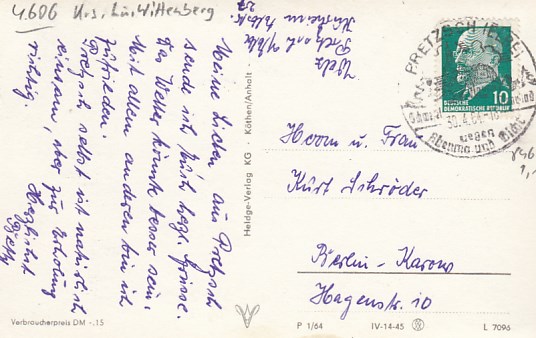 4.606 Krs. Lu. Wittenberg
Meine Lieben aus Pretzsch
sende ich Euch herzl. Grüsse.
Das Wetter könnte besser sein.
Mit allem anderen bin ich
zufrieden.
Pretzsch selbst ist natürlich
einsam, aber zur Erholung
richtig.
Herzlichst
Betty
Heldge-Verlag KG · Köthen/Anhalt ·
PRETZSCH (ELBE)
30.4.64
gegen
Rheuma und Gicht
10
DEUTSCHE
DEMOKRATISCHE REPUBLIK
Herrn u. Frau
Kurt Schröder
Berlin-Karow
Hagenstr. 10
Verbraucherpreis DM -,15
P 1/64
IV-14-45
L 7096